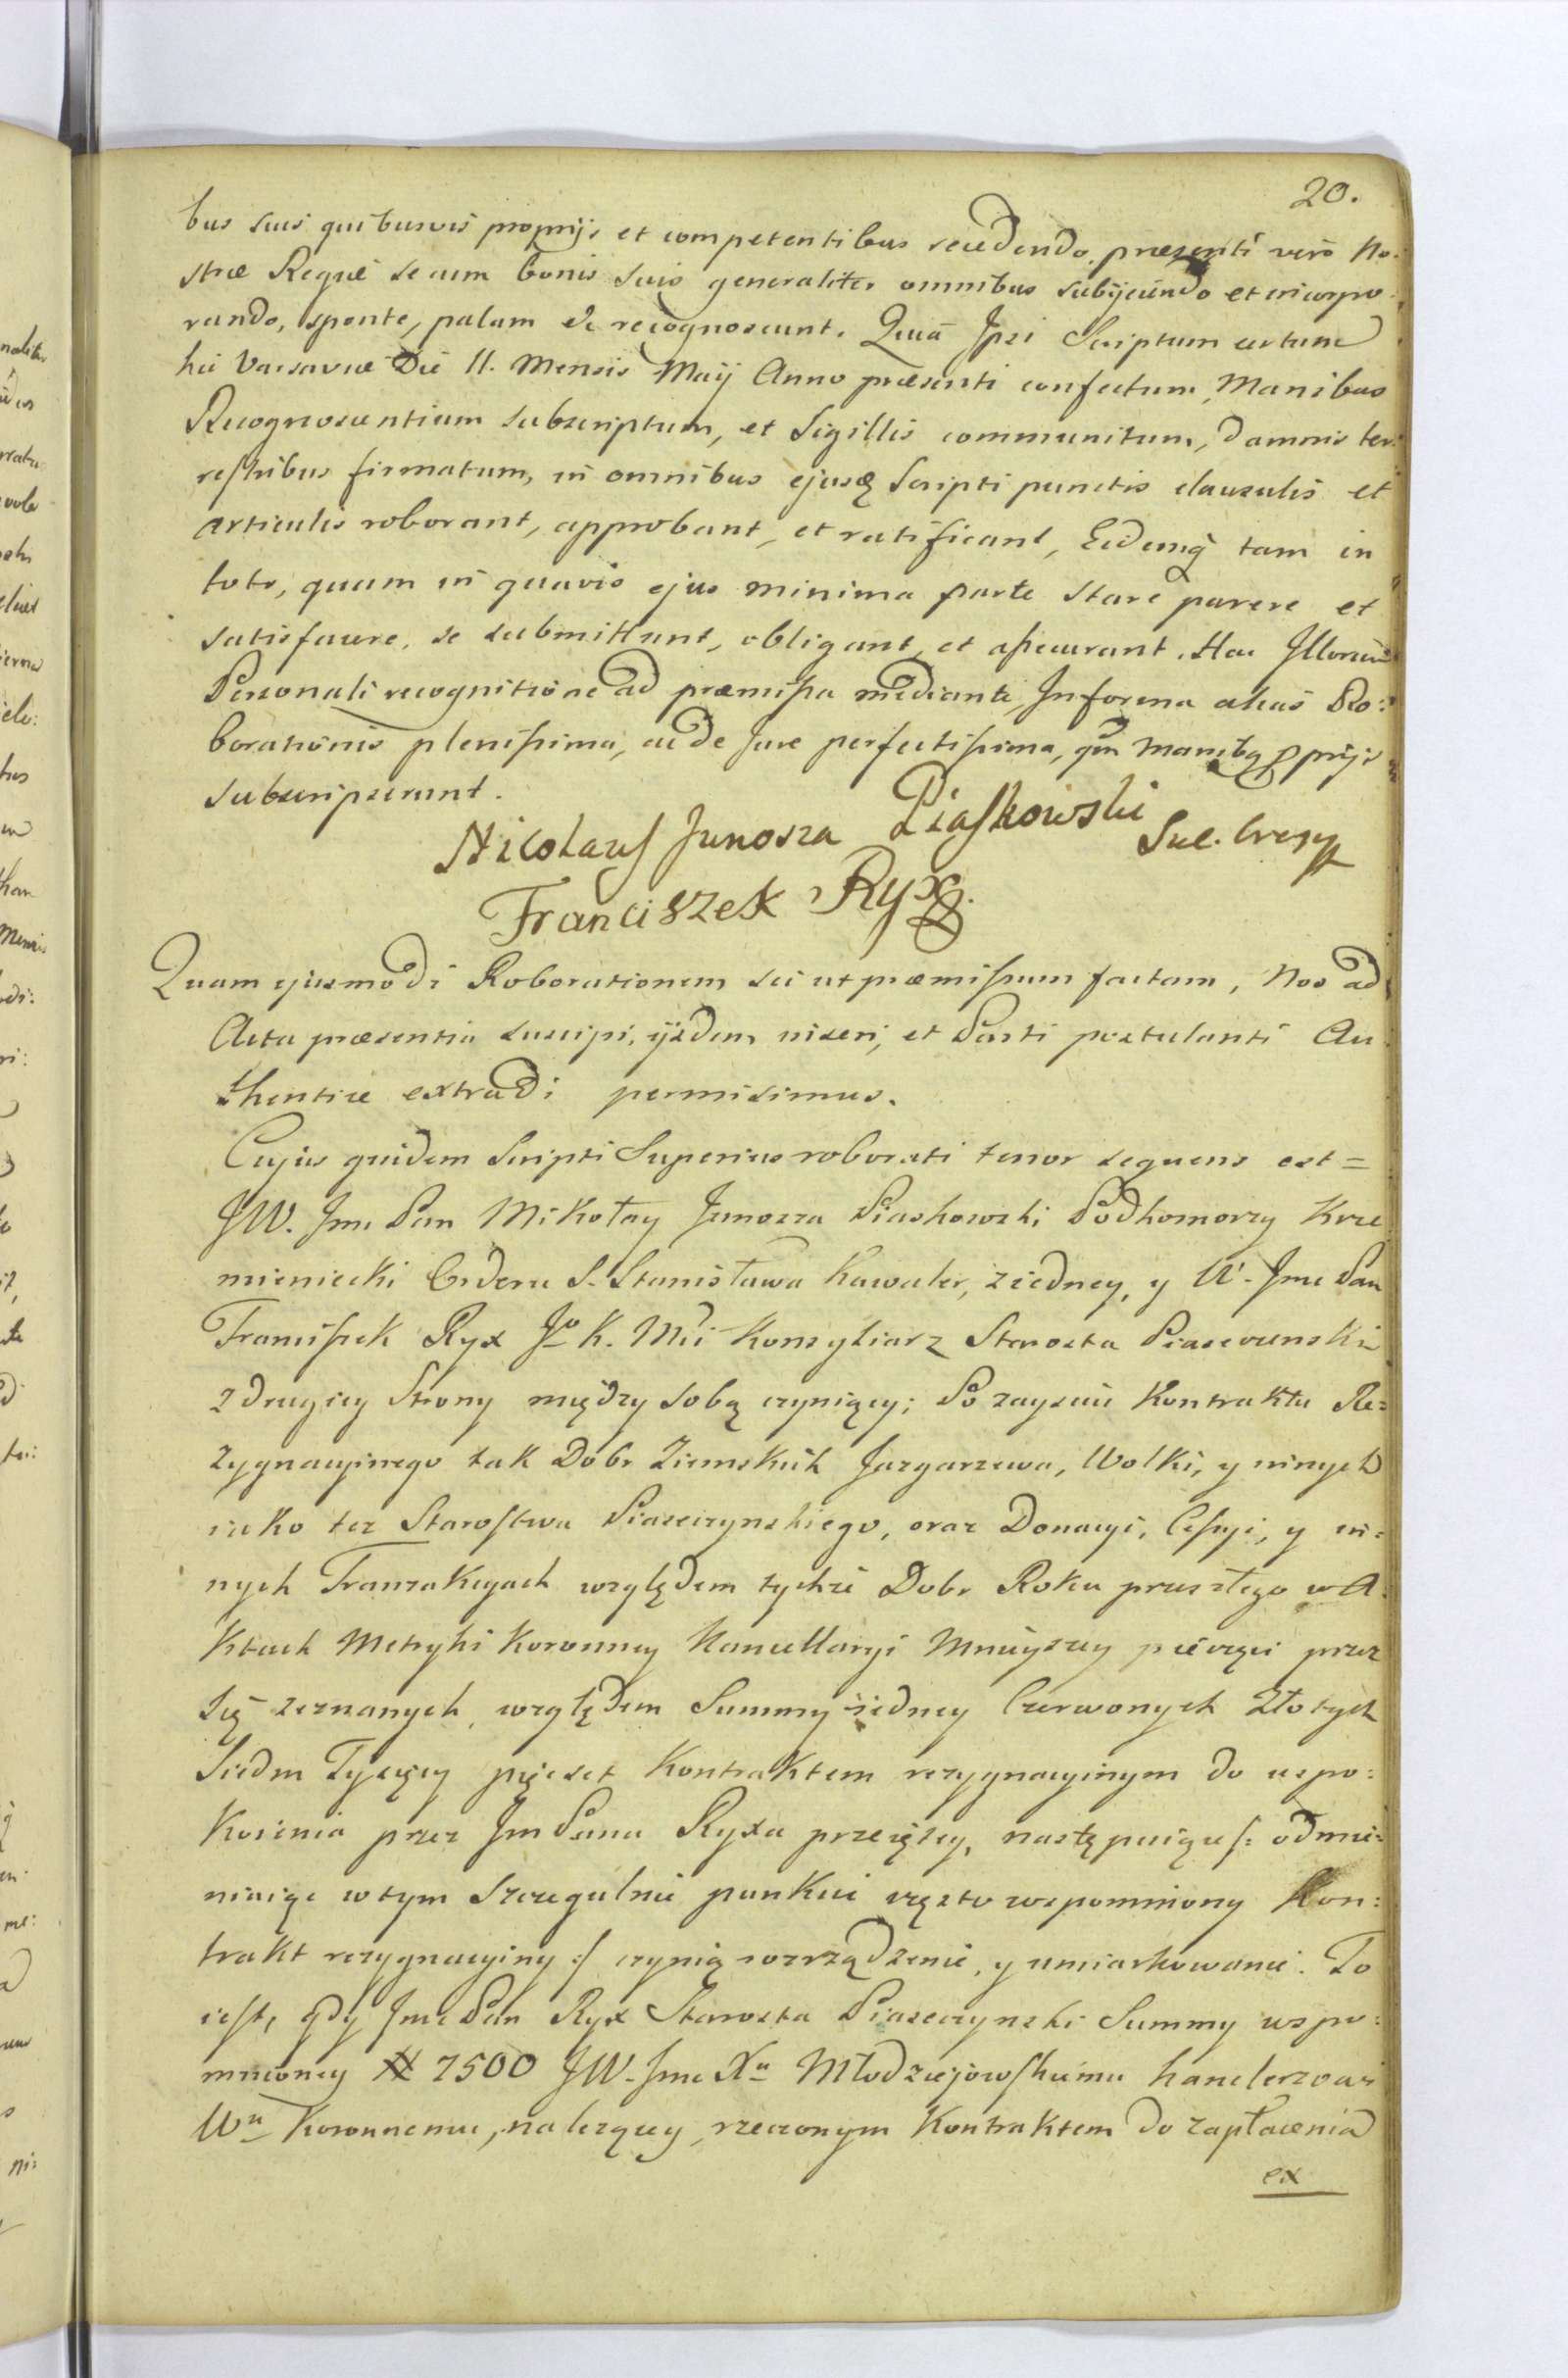 20.
bus suis quibusvis proprijs et competentibus recedendo, præsenti verò No:
stræ Regiæ se cum bonis suis generaliter omnibus subijciendo et incorpo
rando, sponte, palam &c recognoscunt. Quia Ipsi Scriptum certum
hic Varsaviæ Die 11. Mensis Maij Anno præsenti confectum, Manibus
Recognoscentium subscriptum, et Sigillis communitum, damnis ter:
restribus firmatum, in omnibus ejusq Scripti punctis clausulis et
articulis roborant, approbant, et ratificant, Eidemq tam in
toto, quam in quavis ejus minima parte stare parere et
satisfacere, se submittunt, obligant, et assecurant. Hac Illorum
Personali recognitione ad præmissa mediante, In forma alias Ro:
borationis plenissima, ac de Jure perfectissima, qm Manibq pprijs
subscripserunt.
Nicolaus Junosza Piaskowski Suc. Crem
Franciszek Ryx
Quam ejusmodi Roborationem sic ut præmissum factam, Nos ad
Acta præsentia suscipi, ijsdem inseri, et Parti postulanti Au
thentice extradi permisimus.
Cujus quidem Scripti Superius roborati tenor sequens est =
JW. Jmc Pan Mikołay Junosza Piaskowski Podkomorzy Krze
mieniecki Orderu S. Stanisława Kawaler, z iedney, y W. Jmc Pan
Franciszek Ryx Jo K. Mci Konsyliarz Starosta Piaseczenski
z drugiey Strony między sobą czyniący; Po zayściu Kontraktu Re:
zygnacyinego tak Dobr Ziemskich Jazgarzewa, Wolki, y innych
iako też Starostwa Piaseczynskiego, oraz Donacyi, Cessyi, y in:
nych Tranzakcyach względem tychże Dobr Roku przeszłego w A:
Ktach Metryki Koronney Kancellaryi Mnieyszey pieczęci przez
się zeznanych, względem Summy iedney Czerwonych Złotych
Siedm Tysięcy pięcset Kontraktem rezygnacyinym do uspo:
Koienia przez Jm Pana Ryxa przeiętey, następuiące /: odmie:
niaiąc w tym Szczegulnie punkcie często wspomniony Kon:
trakt rezygnacyiny :/ czynią rozrządzenie, y umiarkowanie. To
iest, gdy Jmc Pan Ryx Starosta Piaseczynski Summy wspo:
mnioney # 7500 JW. Jmc Xu Młodzieiowskiemu Kanclerzowi
Wu Koronnemu, należącey, rzeczonym Kontraktem do zapłacenia
ex